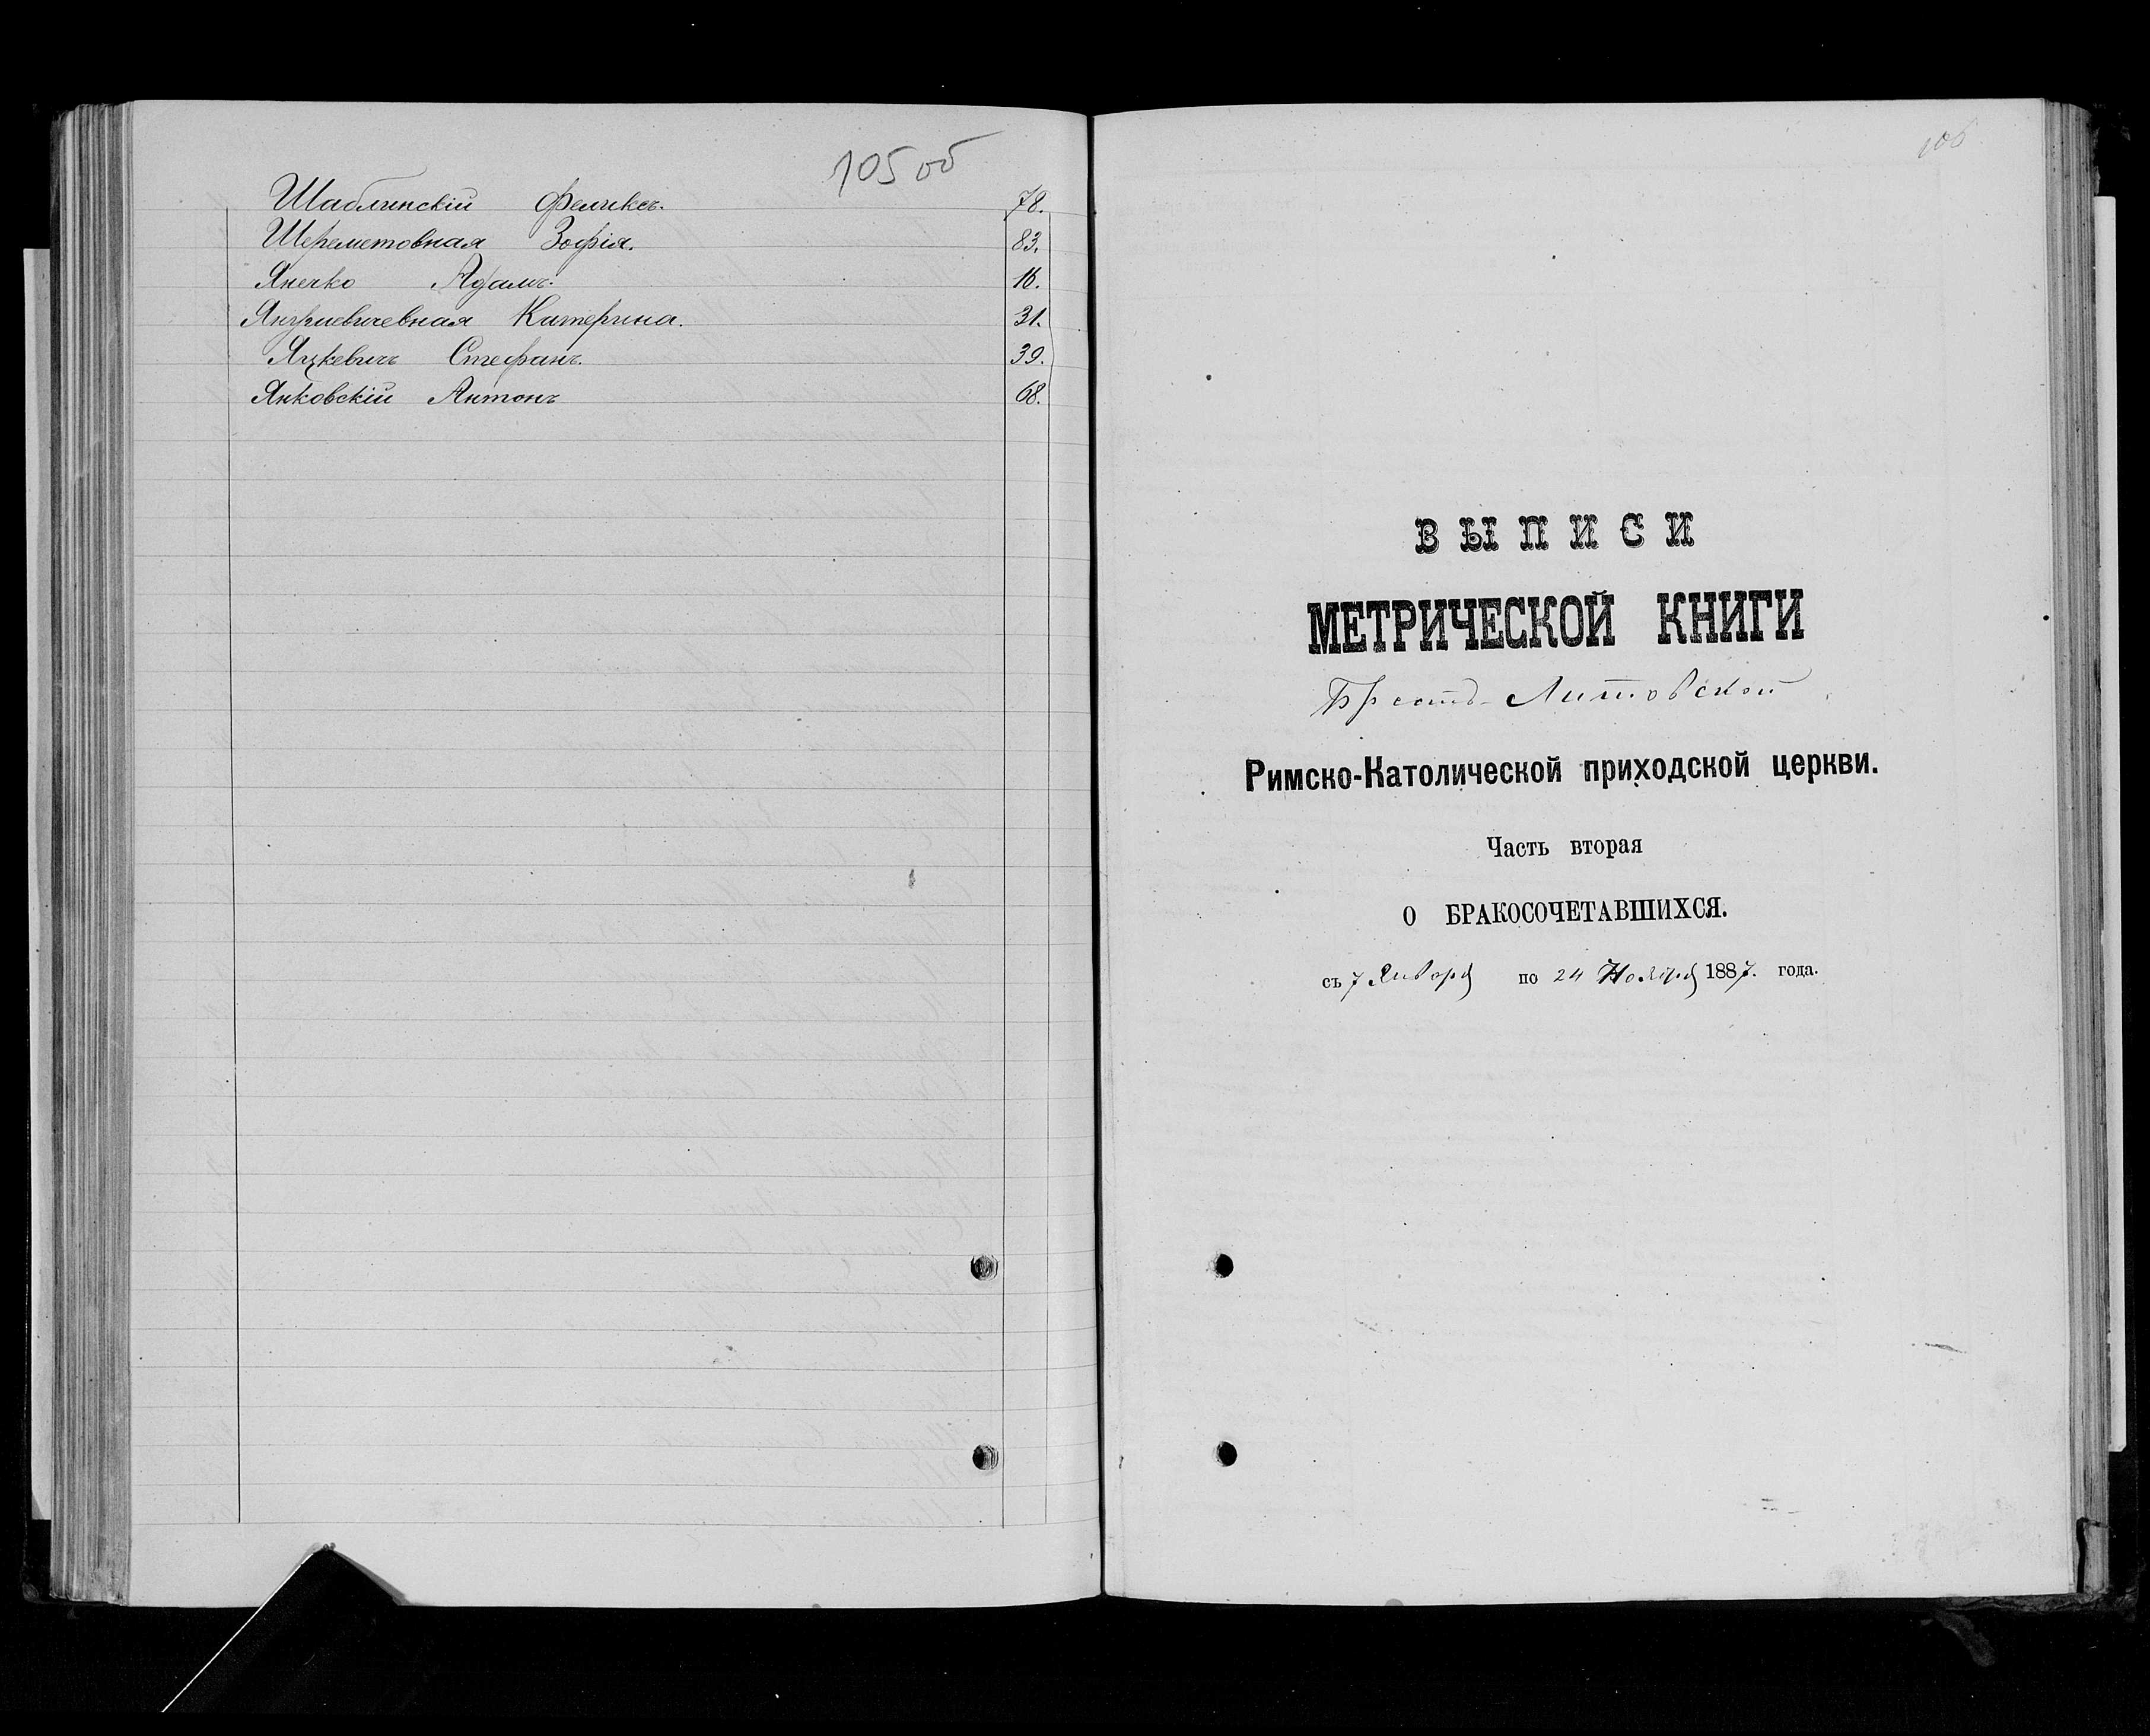 105 об
Шаблинскій Феликсъ. 78.
Шереметовная Зофія. 83.
Янечко Адамъ. 16.
Катерина. 31.
Яцкевичъ Стефанъ. 39.
Янковскій Антонъ 68.
106
ВЫПИСИ
МЕТРИЧЕСКОЙ КНИГИ
Брестъ-Литовской
Римско-Католической приходской церкви.
Часть вторая
О БРАКОСОЧЕТАВШИХСЯ.
съ 7 Января по 24 Ноября 1887. года.